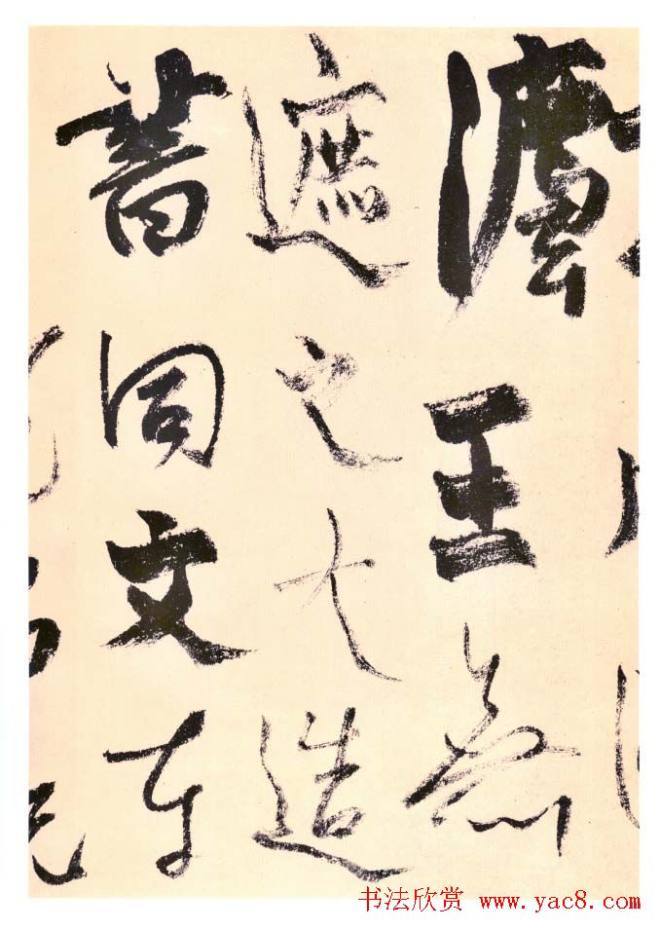 灋王無
遮之大造
書同文車
书法欣赏 www.yac8.com